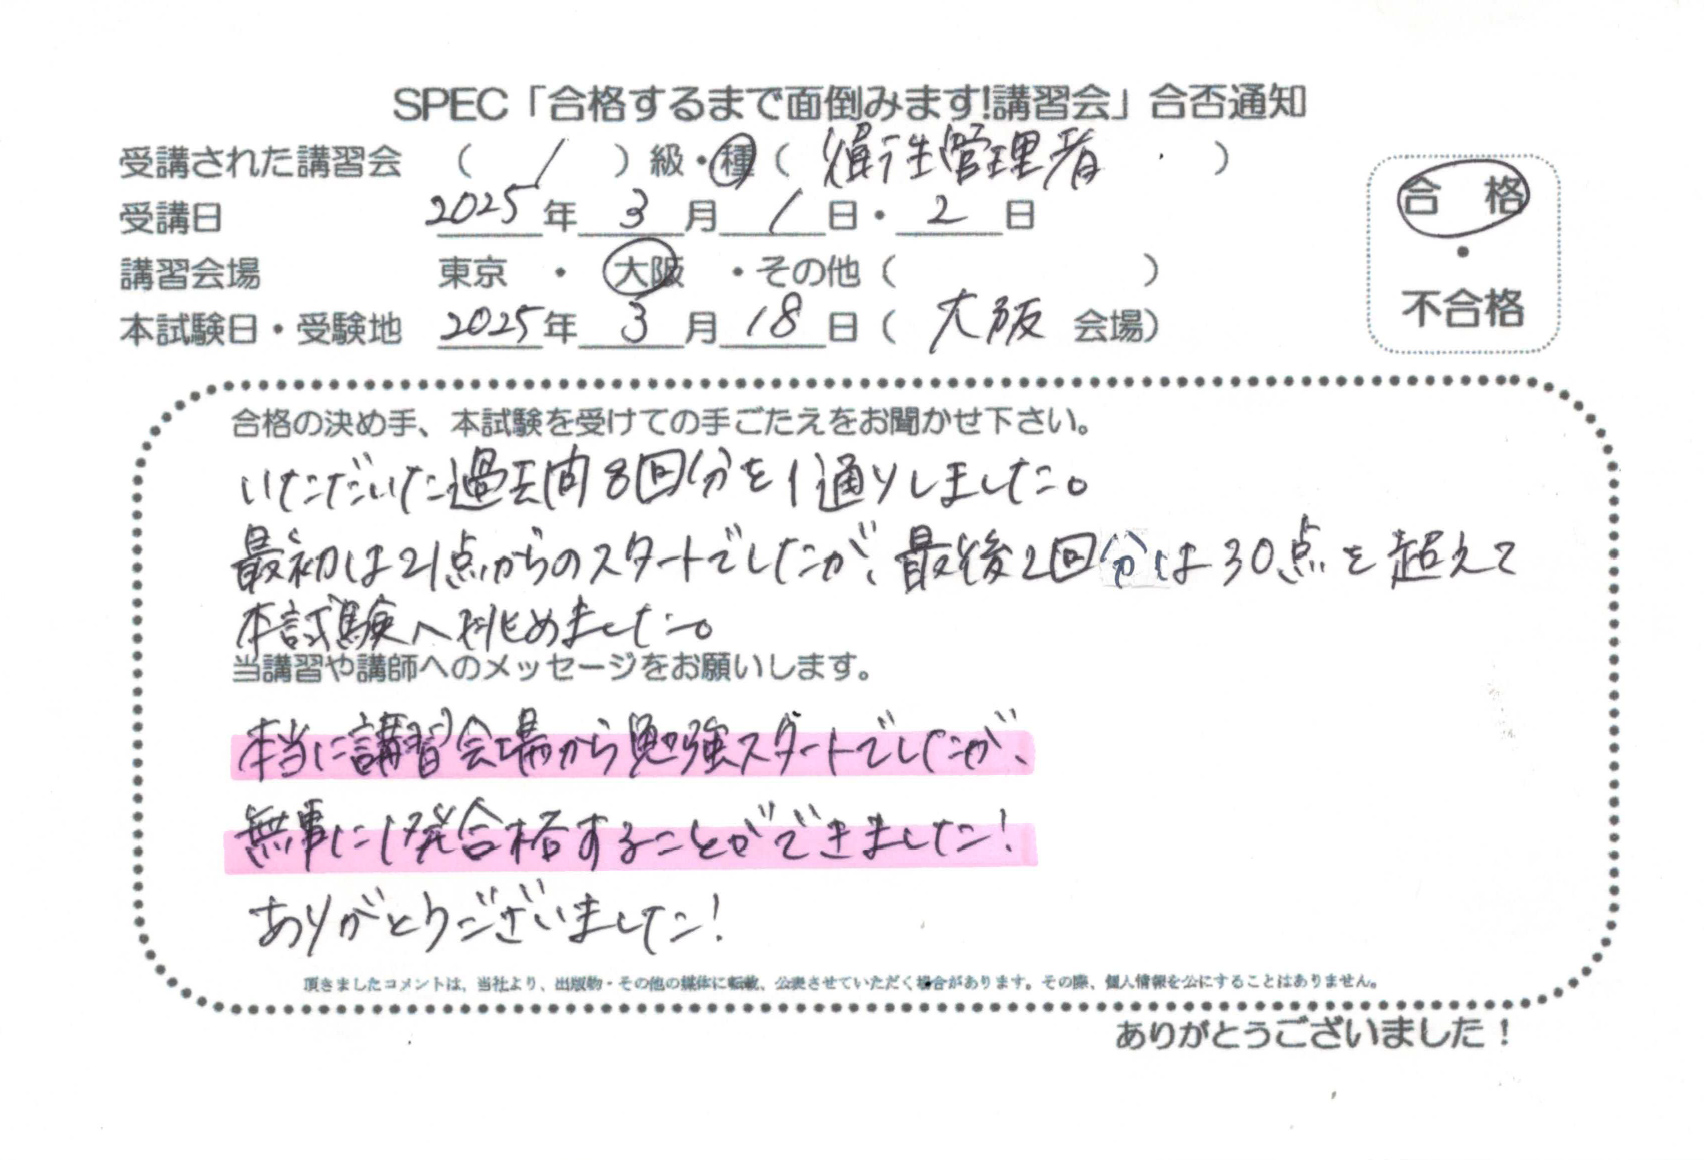 SPEC「合格するまで面倒みます!講習会」合否通知
受講された講習会 ( 1 ) 級・種 ( 衛生管理者 )
受講日 2025年 3月 1日・ 2日
講習会場 東京 ・ 大阪 ・その他 ( )
本試験日・受験地 2025年 3月 18日 ( 大阪 会場)
合 格
・
不合格
合格の決め手、本試験を受けての手ごたえをお聞かせ下さい。
いただいた過去問8回分を1通りしました。
最初は21点からのスタートでしたが、最後2回分は30点を超えて
本試験へ挑めました。
当講習や講師へのメッセージをお願いします。
本当に講習会場から勉強スタートでしたが、
無事に1発合格することができました!
ありがとうございました!
頂きましたコメントは、当社より、出版物・その他の媒体に転載、公表させていただく場合があります。その際、個人情報を公にすることはありません。
ありがとうございました!